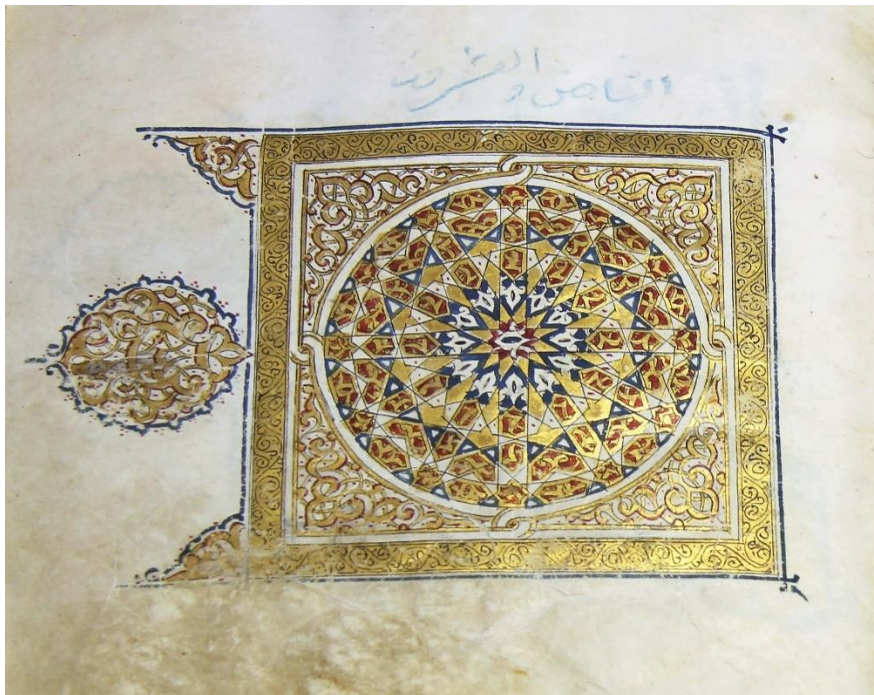 الثامن والعشرين